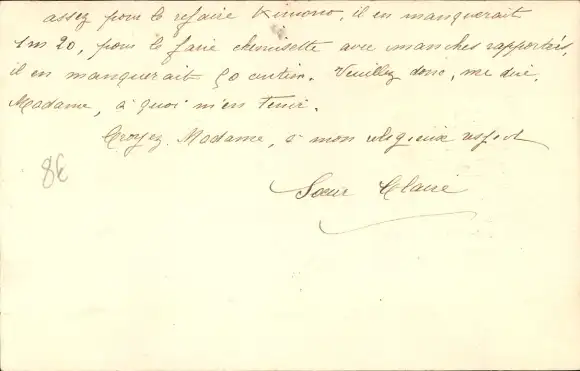 assez pour le refaire Kimono, il en manquerait
1m20, pour le faire chemisette avec manches rapportées,
il en manquerait 50 centim. Veuillez donc, me dire,
Madame, à quoi m'en tenir.
Croyez, Madame, à mon religieux respect
Sœur Claire
8€